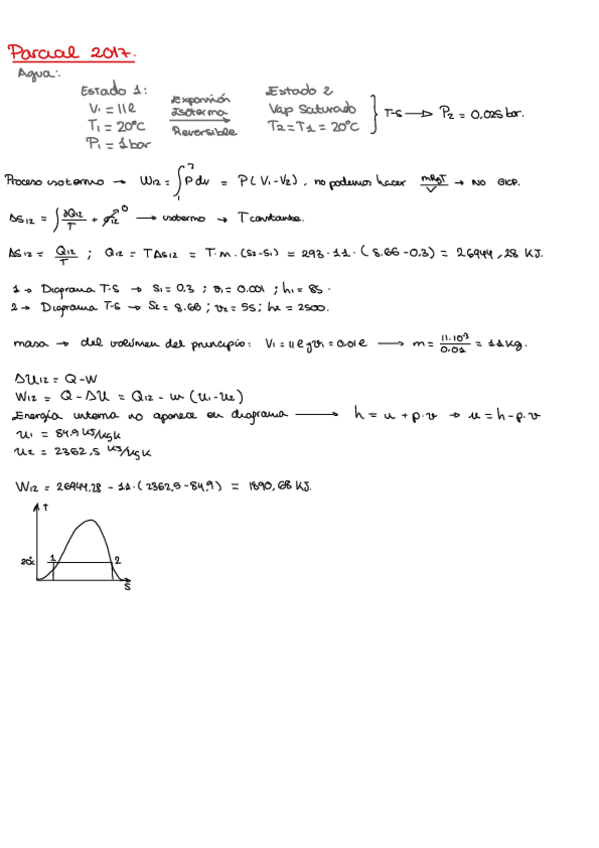 Parcial 2017.
Agua:
Estado 1: Expansión Estado 2
V₁ = 11 l Isoterma Vap Saturado
T₁ = 20°C Reversible T₂ = T₁ = 20°C } T-S → P₂ = 0,025 bar.
P₁ = 1 bar
Proceso isotermo → W₁₂ = ∫² P dv = P(V₁-V₂), no podemos hacer mRT/V → NO GICP.
ΔS₁₂ = ∫ ∂Q₁₂/T + σ₁₂⁰ → isotermo → T constante.
ΔS₁₂ = Q₁₂/T ; Q₁₂ = TΔS₁₂ = T·m·(S₂-S₁) = 293·11·(8.66-0.3) = 26944,28 KJ.
1 → Diagrama T-S → S₁ = 0.3 ; v₁ = 0.001 ; h₁ = 85.
2 → Diagrama T-S → S₂ = 8.66 ; v₂ = 55 ; h₂ = 2500.
masa → del volúmen del principio: V₁ = 11 l y v₁ = 0.01 l → m = 11.10⁻³/0.01 = 11 kg.
ΔU₁₂ = Q-W
W₁₂ = Q-ΔU = Q₁₂ - m (u₁-u₂)
Energía interna no aparece en diagrama → h = u + p·v → u = h-p·v
u₁ = 84.9 KJ/kgK
u₂ = 2362,5 KJ/kgK
W₁₂ = 26944.28 - 11·(2362,5-84,9) = 1890,68 KJ.
T
20°C 1 2
S